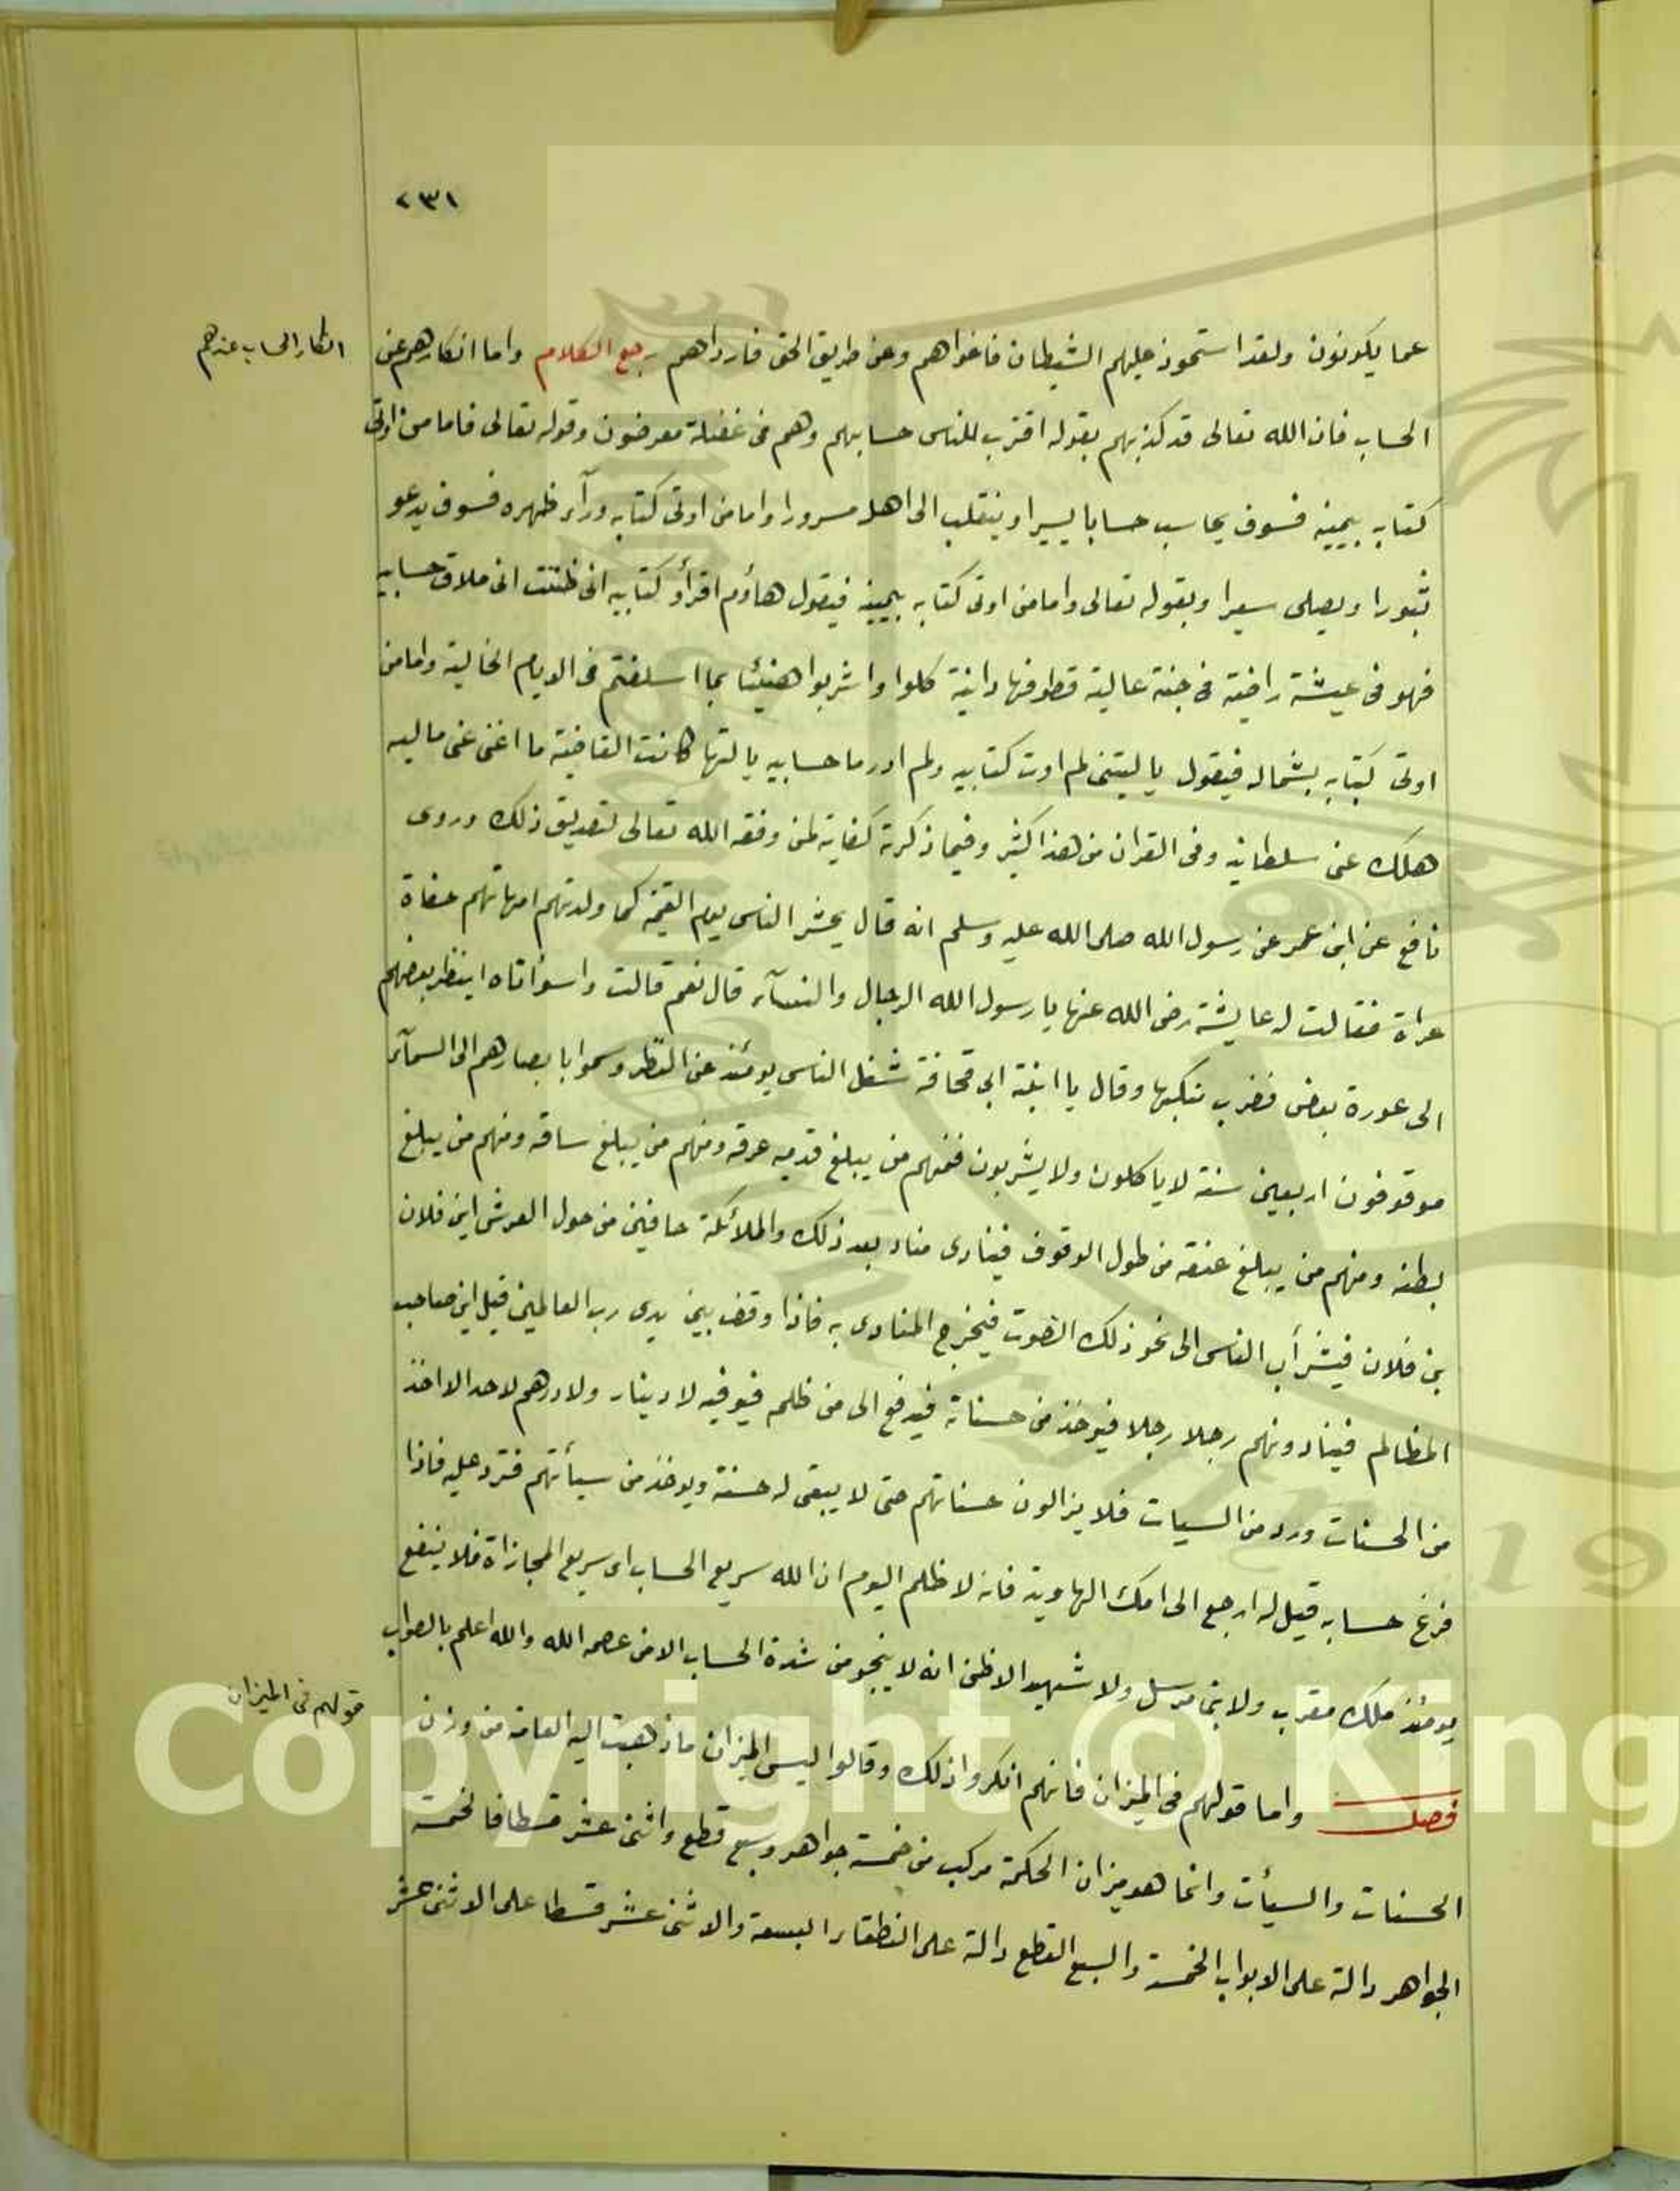 ٢٣١
انكار الحساب عندهم
عما يكونون ولقد استحوذ عليهم الشيطان فاغواهم وعن طريق الحق فارداهم رجع الكلام واما انكارهم عن
الحساب فان الله تعالى قد كذبهم بقوله اقترب للناس حسابهم وهم فى غفلة معرضون وقوله تعالى فاما من اوتى
كتابه بيمينه فسوف يحاسب حسابا يسيرا وينقلب الى اهله مسرورا واما من اوتى كتابه ورآء ظهره فسوف يدعو
ثبورا ويصلى سعيرا وبقوله تعالى واما من اوتى كتابه بيمينه فيقول هاؤم اقرأو كتابيه انى ظننت انى ملاق حسابيه
فهو فى عيشة راضية فى جنة عالية قطوفها دانية كلوا واشربوا هنيئا بما اسلفتم فى الايام الخالية واما من
اوتى كتابه بشماله فيقول يا ليتنى لم اوت كتابيه ولم ادر ما حسابيه يا لتها كانت القاضية ما اغنى عنى ماليه
هلك عنى سلطانيه وفى القران من هذا كثير وفيما ذكرته كفاية لمن وفقه الله تعالى لتصديق ذلك وروى
نافع عن ابن عمر عن رسول الله صلى الله عليه وسلم انه قال يحشر الناس يوم القيمة كما ولدتهم امهاتهم حفاة
عراة فقالت له عايشة رضى الله عنها يا رسول الله الرجال والنسآء قال نعم قالت واسوأتاه اينظر بعضهم
الى عورة بعض فضرب منكبها وقال يا ابنة ابى قحافة شغل الناس يومئذ عن النظر وسموا بابصارهم الى السمآء
موقوفون اربعين سنة لا ياكلون ولا يشربون فمنهم من يبلغ قدميه عرقه ومنهم من يبلغ ساقه ومنهم من يبلغ
بطنه ومنهم من يبلغ عنقه من طول الوقوف فينادى مناد بعد ذلك والملائكة حافين من حول العرش اين فلان
بن فلان فيشرأب الناس الى نحو ذلك الصوت فيخرج المنادى به فاذا وقف بين يدى رب العالمين قيل اين صاحب
المظالم فينادونهم رجلا رجلا فيوخذ من حسناته فيدفع الى من ظلم فيوفيه لا دينار ولا درهم لاحد الا اخذ
من الحسنات ورد من السيات فلا يزالون حسناتهم حتى لا يبقى له حسنة ويوخذ من سيأتهم فترد عليه فاذا
فرغ حسابه قيل له ارجع الى امك الهاوية فانه لا ظلم اليوم ان الله سريع الحساب اى سريع المجازاة فلا ينفع
يومئذ ملك مقرب ولا نبى مرسل ولا شهيد الا ظن انه لا ينجو من شدة الحساب الا من عصمه الله والله اعلم بالصواب
قولهم فى الميزان
فصل واما قولهم فى الميزان فانهم انكروا ذلك وقالوا ليس الميزان ما ذهبت اليه العامة من وزن
الحسنات والسيأت وانما هو ميزان الحكمة مركب من خمسة جواهر وسبع قطع واثنى عشر قسطا فالخمسة
الجواهر دالة على الابواب الخمسة والسبع القطع دالة على النطقاء السبعة والاثنى عشر قسطا على الاثنى عشر
Copyright © King
19